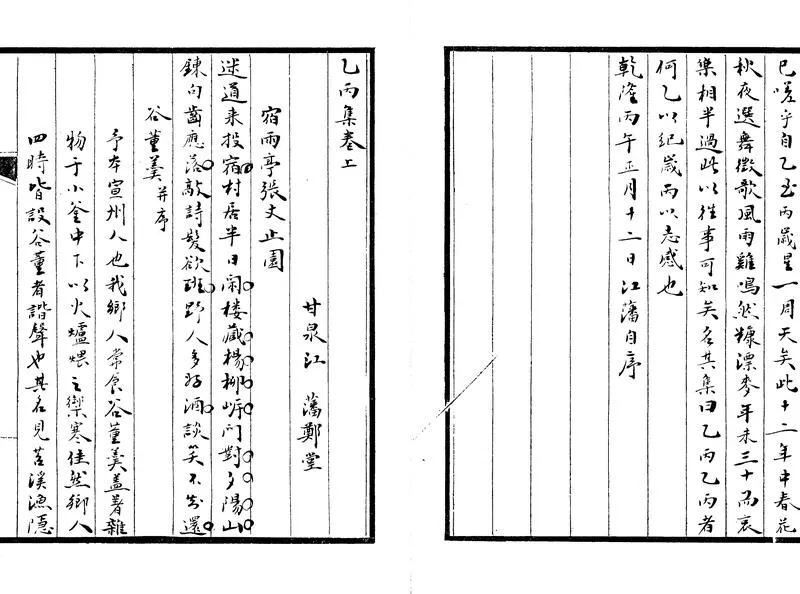 已嗟乎自乙至丙歲星一周天矣此十二年中春花
秋夜選舞徵歌風雨雞鳴然糠漂麥年未三十而哀
樂相半過此以往事可知矣名其集曰乙丙乙丙者
何乙以紀歲丙以志感也
乾隆丙午正月十二日江藩自序
乙丙集卷上
甘泉江 藩鄭堂
宿雨亭張丈止園
迷道来投宿村居半日閑楼藏楊柳岸门對夕陽山
鍊句齒應落敲詩髮欲班野人多好酒談笑不知還
谷董羹并序
予本宣州人也我鄉人常食谷董羹盖着雜
物于小釜中下以火爐煨之禦寒佳然鄉人
四時皆設谷董者諧聲也其名見苕溪漁隱